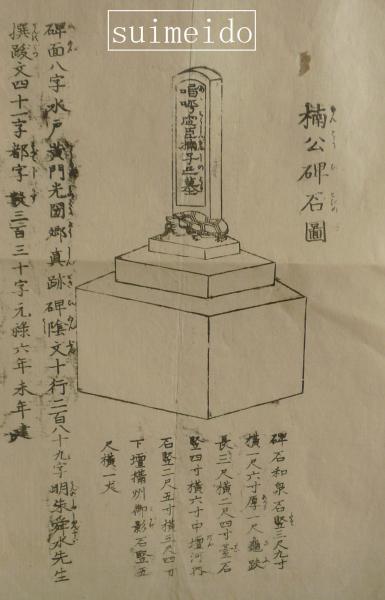 suimeido
楠公碑石圖
嗚呼忠臣楠子之墓
碑石和泉石竪三尺九寸
横一尺六寸厚一尺龜趺
長三尺横二尺四寸臺石
竪四寸横六寸中壇河内
石竪二尺五寸横三尺四寸
下壇備州御影石竪五
尺横一丈
碑面八字水戸黄門光圀郷真跡碑陰文十行二百八十九字明朱舜水先生
撰跋文四十一字都字數三百三十字元祿六年未年建